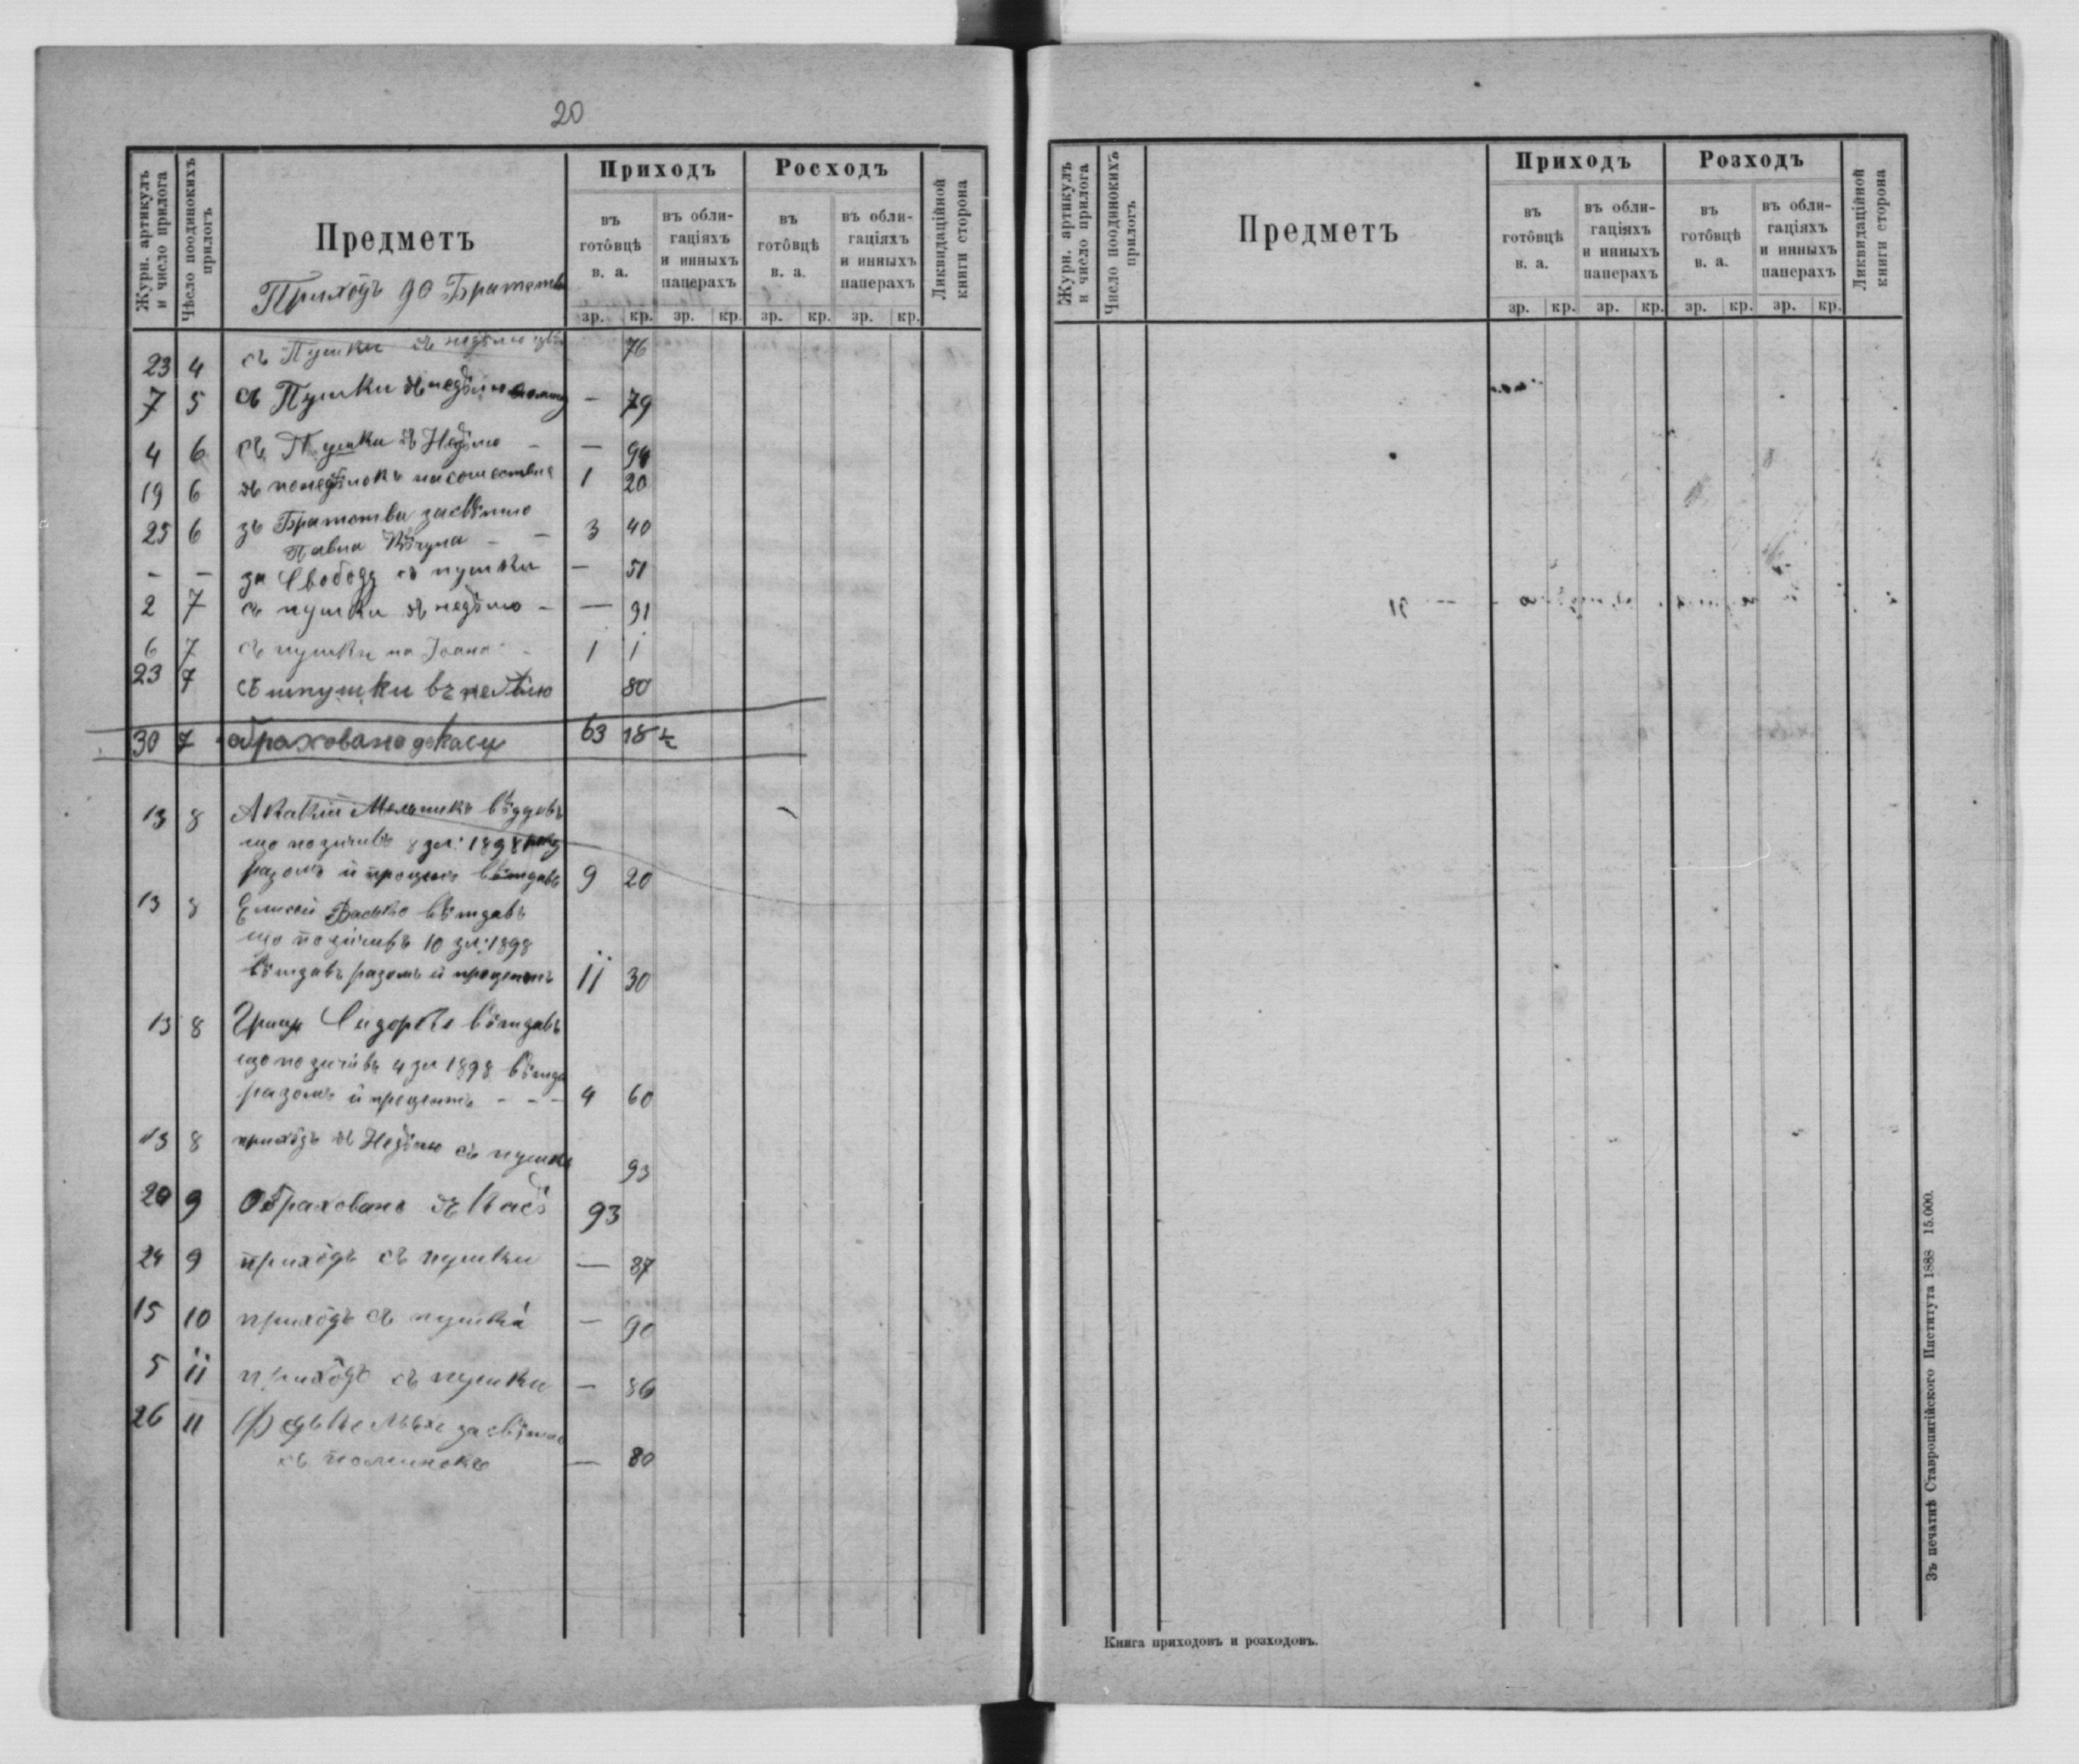 20
Журн. артикулъ и число прилога
Чѣсло поодинокихъ прилогъ
Предметъ
Приходъ
Росходъ
въ готôвцѣ в. а.
въ облигаціяхъ и инныхъ паперахъ
въ готôвцѣ в. а.
въ облигаціяхъ и инныхъ паперахъ
Ликвидаційной книги сторона
зр. кр. зр. кр. зр. кр. зр. кр.
Прихôдъ до Братства
23 4 съ Пушки въ недѣлю 76
7 5 съ Пушки въ недѣлю — 79
4 6 съ Пушки въ Недѣлю — — 94
19 6 въ понедѣлокъ 1 20
25 6 зъ Братства засвѣтло
Павла — — 3 40
— — за Свободу съ пушки — 51
2 7 съ пушки въ недѣлю — — 91
6 7 съ пушки на Іоана - 1 1
23 7 съ пушки въ неделю 80
30 7 обраховано до каси 63 18 ½
13 8 Мельникъ вôддавъ
що позичивъ 8 зл: 1898 року
разомъ и процентъ вôтдавъ 9 20
13 8 Елисей Васько вôтдавъ
що позичивъ 10 зл: 1898
вôтдавъ разомъ и процентъ 11 30
13 8 Сидорко вôтдавъ
що позичивъ 4 зл 1898 вôтда
разомъ и процентъ - - - 4 60
13 8 прихôдъ въ Недѣлю съ пушки 93
20 9 Обраховано въ Касѣ 93
24 9 прихôдъ съ пушки — 87
15 10 прихôдъ съ пушки — 90
5 11 прихôдъ съ пушки — 86
26 11 за свѣтло
съ поминокъ — 80
Журн. артикулъ и число прилога
Число поодинокихъ прилогъ
Предметъ
Приходъ
Розходъ
въ готôвцѣ в. а.
въ облигаціяхъ и инныхъ паперахъ
въ готôвцѣ в. а.
въ облигаціяхъ и инныхъ паперахъ
Ликвидаційной книги сторона
зр. кр. зр. кр. зр. кр. зр. кр.
Книга приходовъ и розходовъ.
Зъ печатнѣ Ставропигійского Института 1888 15.000.